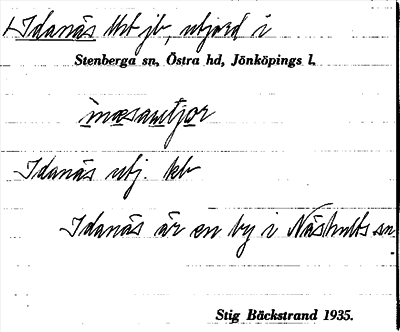 Idanäs Utj jb, utjord i
Stenberga sn, Östra hd, Jönköpings l.
Idanäs utj. kb
Idanäs är en by i Näshults sn
Stig Bäckstrand 1935.